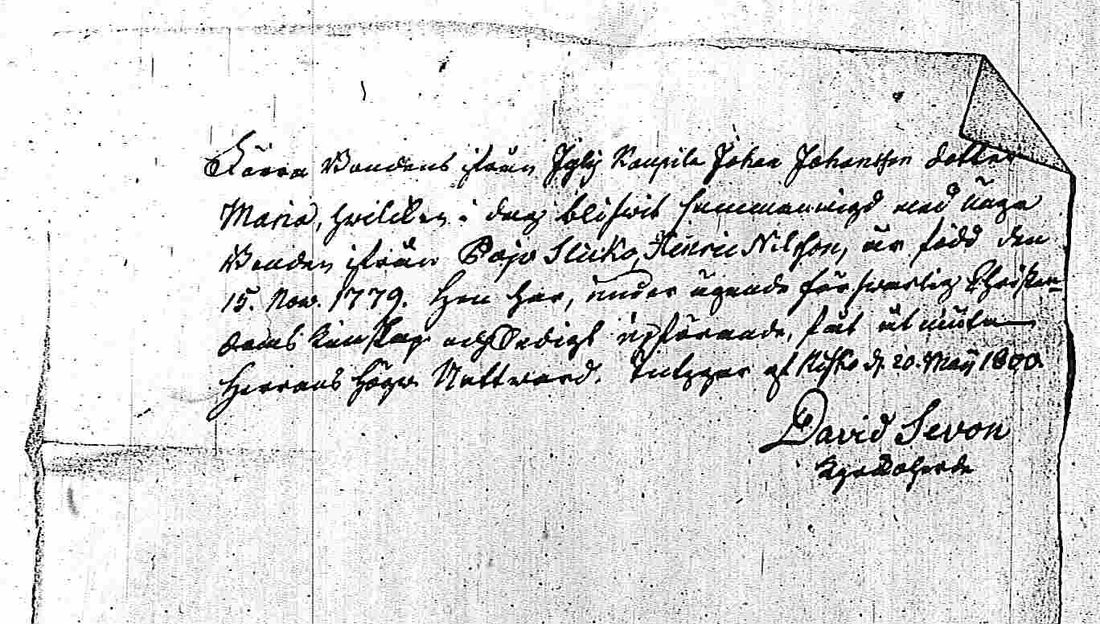 Bonden ifrån Jylij Kaupila Johan Johansson dotter
Maria, hvilken i dag blifvit sammanvigd med unga
Bonden ifrån Pajo Sluko, Hinric Nilsson, är född den
15. Nov. 1779. Hon har, under ägande försvarlig Christen-
doms kunskap och Sedigt upförande, fåt åtniuta
Herrans Höga Nattward. Intygar af d. 20. Maij 1800.
David Sevon
Kyrkoherde